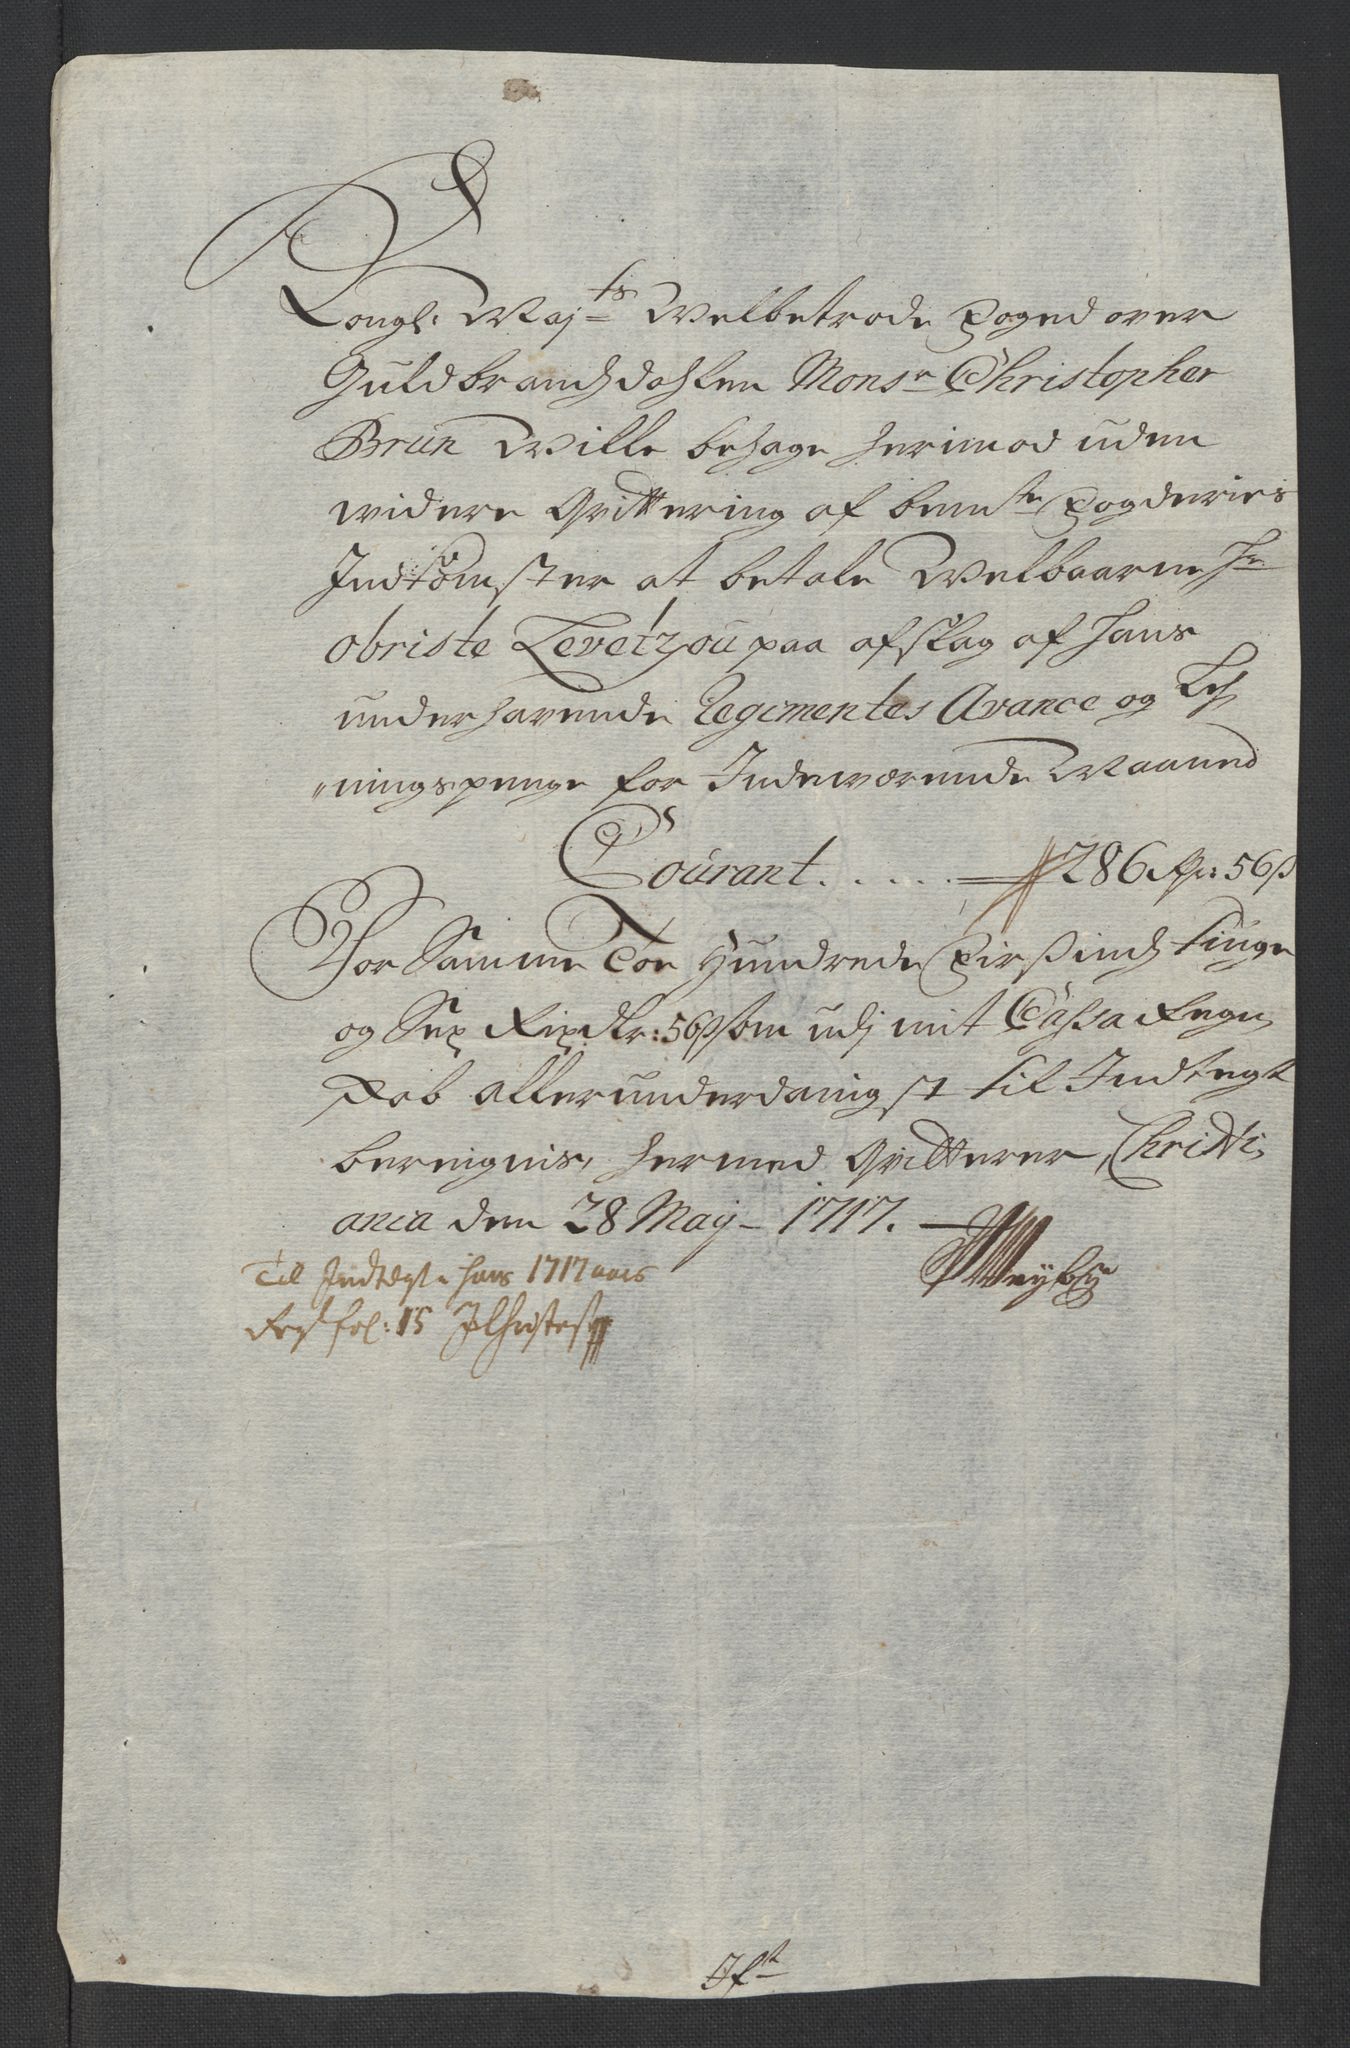 Kongl: Maj:ts Welbetrode Foged over
Guldbrandsdahlen Monsr Christopher
Brun Wille behage herimod uden
widere Qvittering af bemte Fogderies
Indkomster at betale Welbaarne Hr
Obriste Levetzou paa afslag af hans
underhavende Regimentes Avance og Leh
ningspenge for Indeværende Maaned
Courant. . . . . 286 Rdr: 56ß
For Samme Toe Hundrede Firsindstiuge
og Sex Rixdlr: 56ß som udj mit Cassa Regn
skab allerunderdanigst til Indtegt
beregnis, hermed Qvitterer, Christi
ania den 28 Maij 1717.
Til Indtegt i hans 1717 aars
Regsk fol: 15